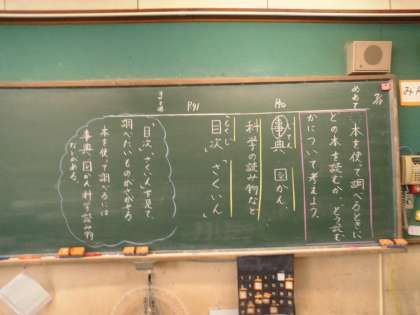 めあて
本を使って調べるときに
どの本を読むか、どう読む
かについて考えよう。
事典、図かん、
科学の読み物など
もくじ
目次、さくいん
目次、さくいんを見て、
調べたいものがさがせる。
本を使って調べるには
事典、図かん、科学読み物
などがある。